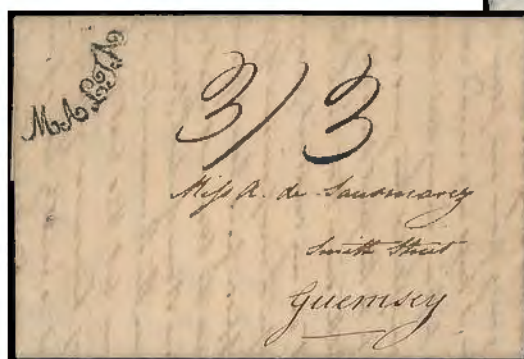 MALTA
3/3
Miss A. de Sausmarez
Smith Street
Guernsey